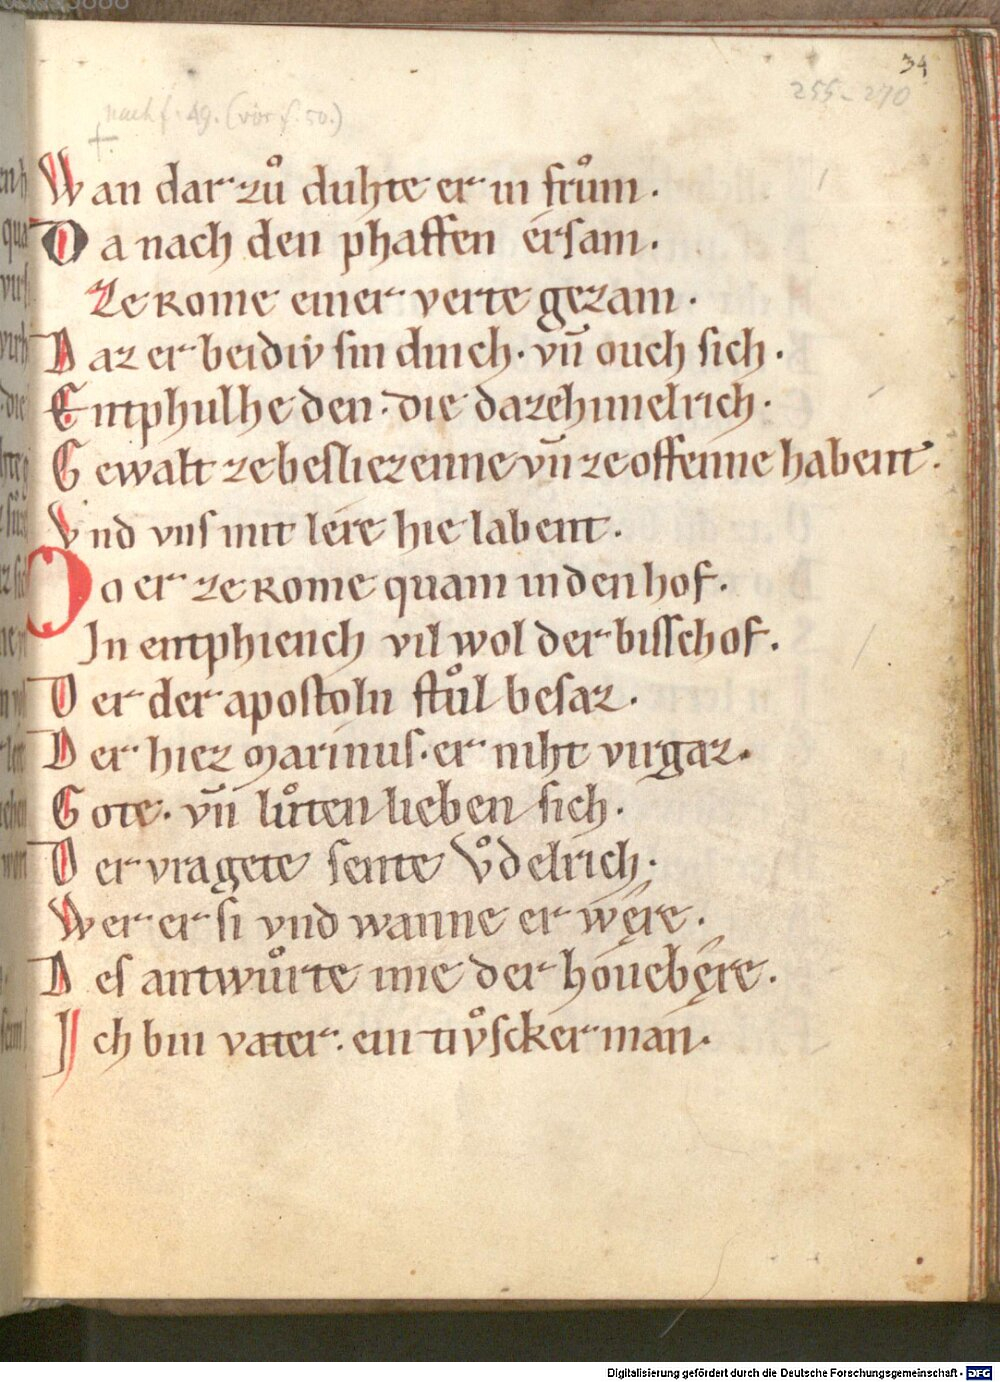 34
255-270
nach f. 49. (vor f. 50.)
Wan dar zuͦ duhte er in fruͦm.
Da nach den phaffen ersam.
Ze rome einer verte gezam.
Daz er beidiv sin dinch. vn̄ ouch sich.
Entphulhe den. die daz ehimelrich.
Gewalt ze besliezenne vn̄ ze offenne habent.
Vnd vns mit lere hie labent.
Do er ze rome quam in den hof.
In entphiench vil wol der bisschof.
Der der apostoln stuͦl besaz.
Der hiez Marinus. er niht virgaz.
Gote. vn̄ luͦten lieben sich.
Der vragete sente Vͦdelrich.
Wer er si vnd wanne er węre.
Des antwuͦrte ime der houebęre.
Ich bin vater. ein tivͦscker man.
Digitalisierung gefördert durch die Deutsche Forschungsgemeinschaft - DFG